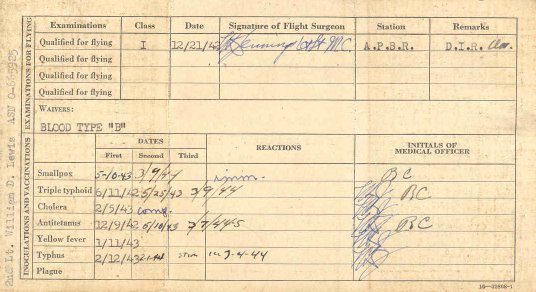 Examinations Class Date Signature of Flight Surgeon Station Remarks
Qualified for flying I 12/21/42 M.C. A.P.S.R. D.I.R.
Qualified for flying
Qualified for flying
Qualified for flying
WAIVERS:
BLOOD TYPE "B"
DATES
First Second Third REACTIONS INITIALS OF MEDICAL OFFICER
Smallpox 5-10-43 3/9/44 imm. BC
Triple typhoid 6/11/42 5/25/43 3/9/44 BC
Cholera 2/5/43 comp.
Antitetanus 12/9/42 5/10/43 BC
Yellow fever 1/11/43
Typhus 2/12/43 stim
Plague
16—32898-1
EXAMINATIONS FOR FLYING
INOCULATIONS AND VACCINATIONS
2nd Lt. William D. Lewis ASN